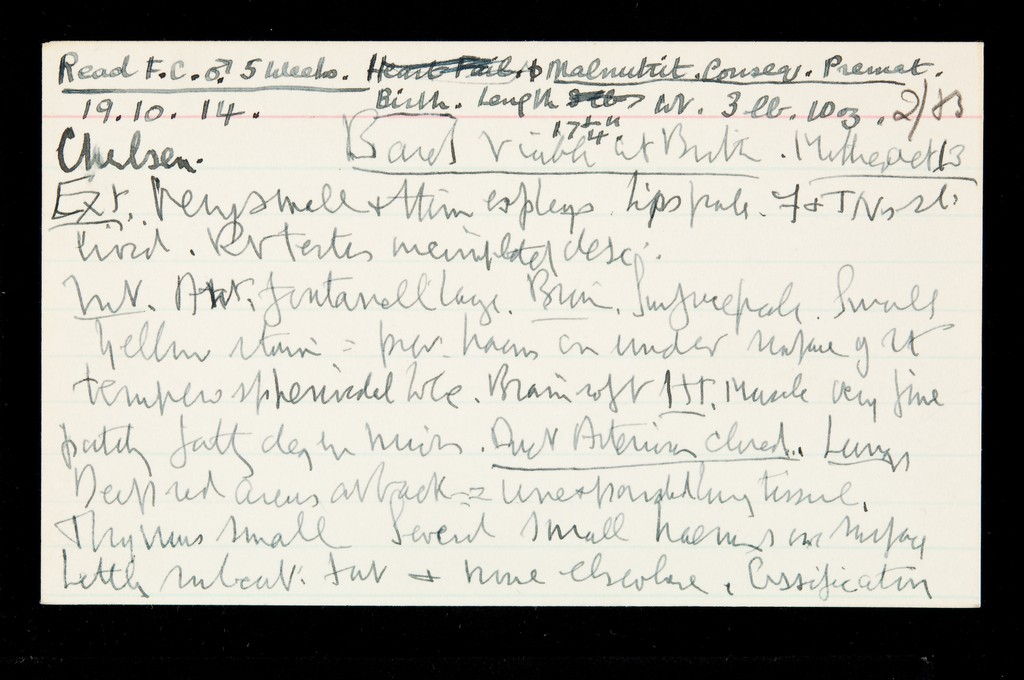 Read F.C. ♂ 5 Weeks. Heart Fail. Malnutrit. Conseq. Premat.
19.10.14. Birth. Length Wt. 3 lb. 10 oz. 2/83
17 1/4"
Chelsea. Barely Viable at Birth. Mother aet 13
Ext. Very small & thin Lips pale. F & T Nails
livid. Rt testes incompleted desc.
Int. Ant. fontanell large. Brain. Surface pale. Small
yellow stain = prev. haem on under surface of rt
temperosphenoidal lobe. Brain soft Ht. Muscle very fine
patchy fatty degen micros. Duct Arteriosus closed. Lungs
Deep red areas at back = unexpanded lung tissue.
Thymus small Several small haems on surface
Little subcut. fat & none elsewhere. Ossification